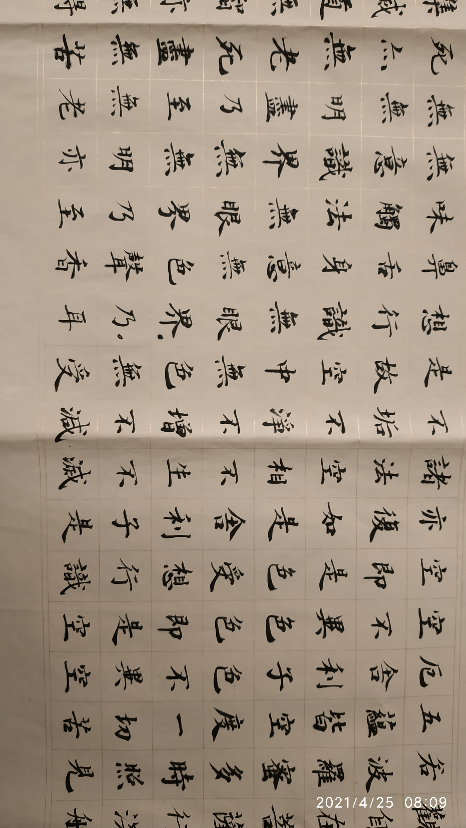 觀自在菩薩行深般
若波羅蜜多時照見
五蘊皆空度一切苦
厄舍利子色不異空
空不異色色即是空
空即是色受想行識
亦復如是舍利子是
諸法空相不生不滅
不垢不淨不增不減
是故空中無色無受
想行識無眼界乃耳
鼻舌身意無色聲香
味觸法無眼界乃至
無意識界無無明亦
無無明盡乃至無老
死亦無老死盡無苦
集滅道無智亦無得
2021/4/25 08:09